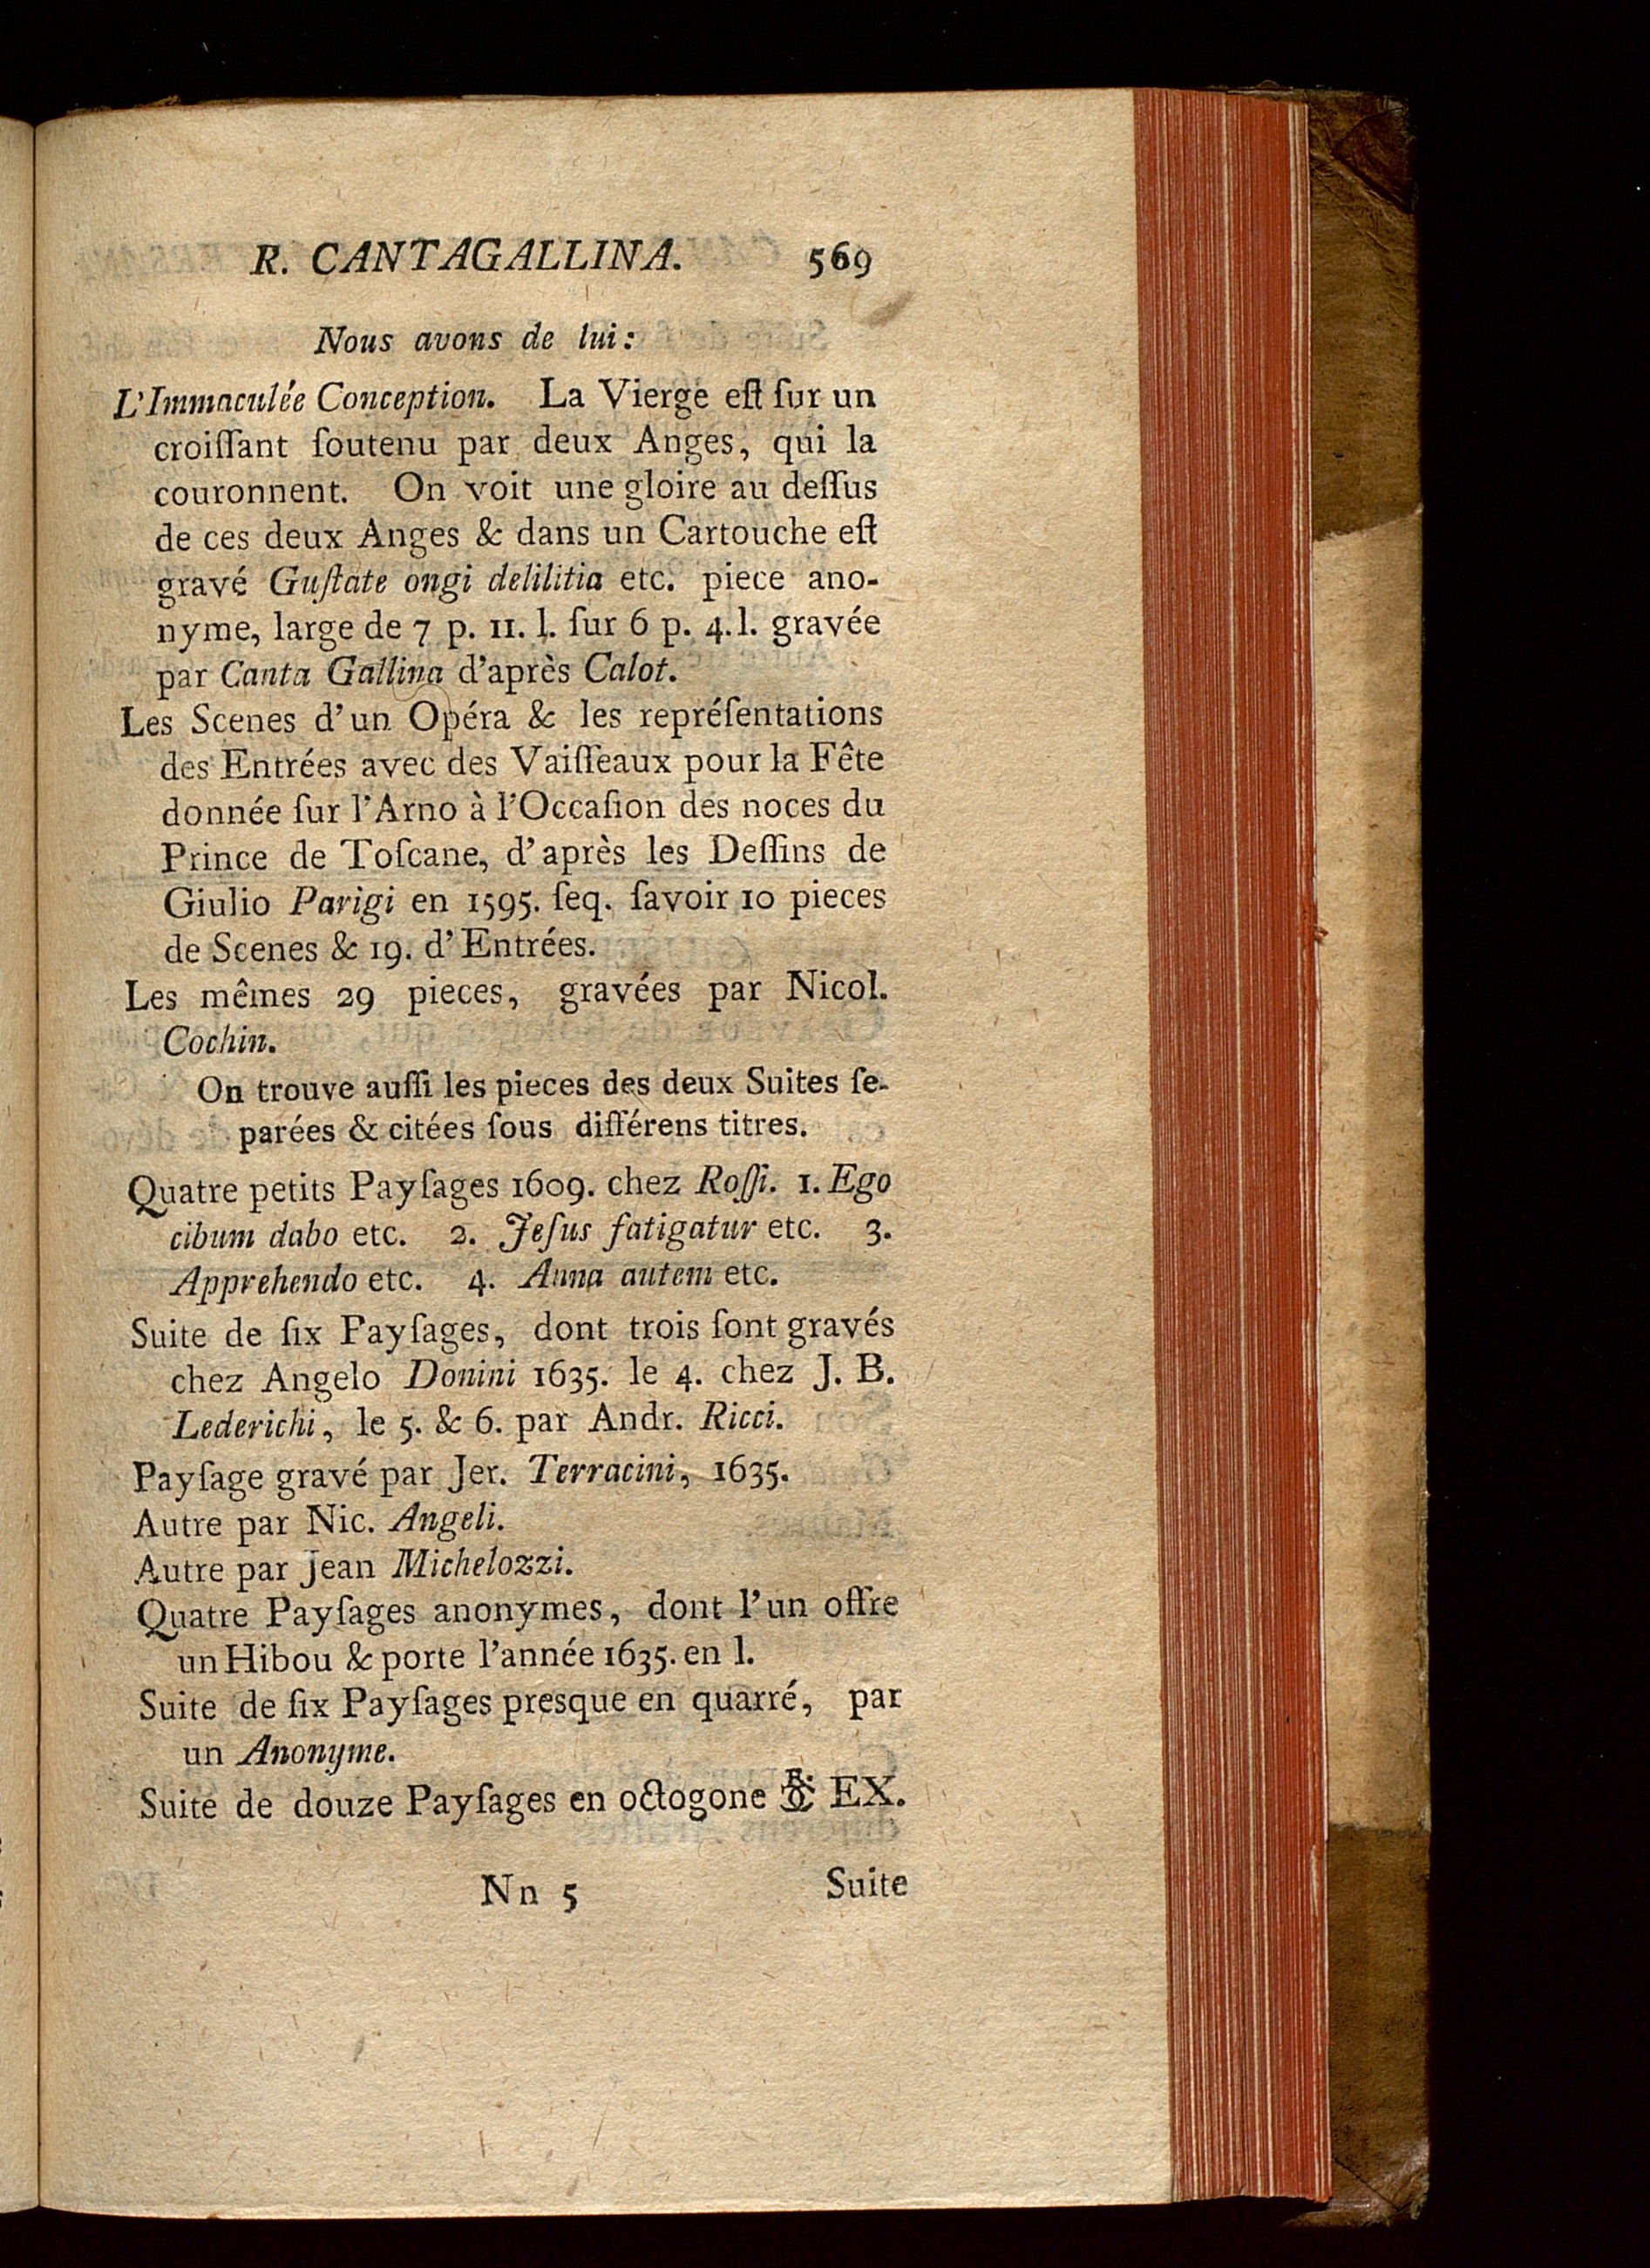 R. CANTAGALLINA. 569
Nous avons de lui:
L'Immaculée Conception. La Vierge eſt ſur un
croiſſant ſoutenu par deux Anges, qui la
couronnent. On voit une gloire au deſſus
de ces deux Anges & dans un Cartouche eſt
gravé Guſtate ongi delilitia etc. piece ano-
nyme, large de 7 p. 11. l. ſur 6 p. 4. l. gravée
par Canta Gallina d'après Calot.
Les Scenes d'un Opéra & les repréſentations
des Entrées avec des Vaiſſeaux pour la Fête
donnée ſur l'Arno à l'Occaſion des noces du
Prince de Toſcane, d'après les Deſſins de
Giulio Parigi en 1595. ſeq. ſavoir 10 pieces
de Scenes & 19. d'Entrées.
Les mêmes 29 pieces, gravées par Nicol.
Cochin.
On trouve auſſi les pieces des deux Suites ſe-
parées & citées ſous différens titres.
Quatre petits Payſages 1609. chez Roſſi. 1. Ego
cibum dabo etc. 2. Jeſus fatigatur etc. 3.
Apprehendo etc. 4. Anna autem etc.
Suite de ſix Payſages, dont trois ſont gravés
chez Angelo Donini 1635. le 4. chez J. B.
Lederichi, le 5. & 6. par Andr. Ricci.
Payſage gravé par Jer. Terracini, 1635.
Autre par Nic. Angeli.
Autre par Jean Michelozzi.
Quatre Payſages anonymes, dont l'un offre
un Hibou & porte l'année 1635. en l.
Suite de ſix Payſages presque en quarré, par
un Anonyme.
Suite de douze Payſages en octogone EX.
Nn 5 Suite